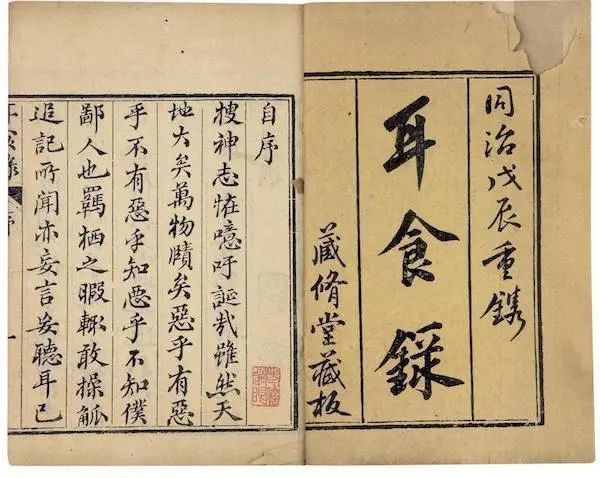 同治戊辰重鐫
耳食錄
藏脩堂藏板
自序
搜神志恠噫吁誕哉雖然天
地大矣萬物賾矣惡乎有惡
乎不有惡乎知惡乎不知僕
鄙人也羈栖之暇輒敢操觚
追記所聞亦妄言妄聽耳已
耳食錄
序
一